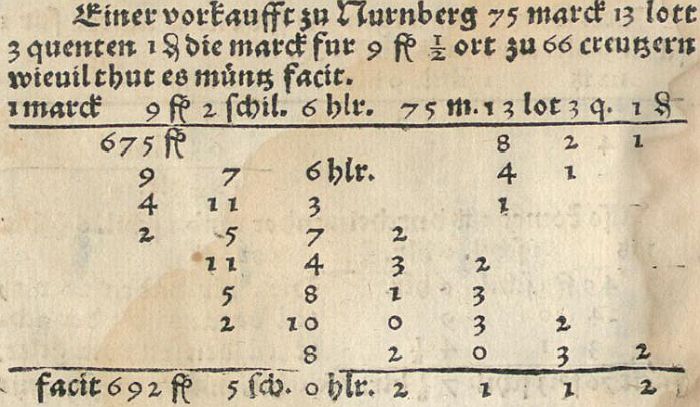 Einer vorkaufft zu Nurnberg 75 marck 13 lott
3 quenten 1 ₰ die marck fur 9 fl ½ ort zu 66 creutzern
wieuil thut es müntz facit.
1 marck 9 fl 2 ſchil. 6 hlr. 75 m. 13 lot 3 q. 1 ₰
675 fl 8 2 1
9 7 6 hlr. 4 1
4 11 3 1
2 5 7 2
11 4 3 2
5 8 1 3
2 10 0 3 2
8 2 0 3 2
facit 692 fl 5 ſch. 0 hlr. 2 1 1 2